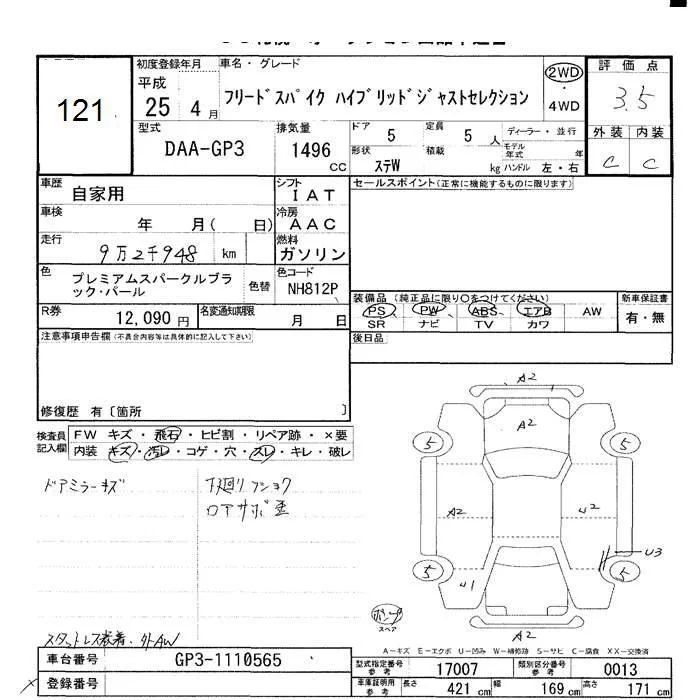 121
初度登録年月
平成
25 4 月
車名・グレード
フリードスパイク ハイブリッドジャストセレクション
2WD
・
4WD
評価点
3.5
外装 内装
C C
型式
DAA-GP3
排気量
1496
CC
ドア 5
定員 5 人
ディーラー・並行
形状 ステW
積載 kg
モデル年式 年
ハンドル 左・右
車歴 自家用
シフト IAT
セールスポイント(正常に機能するものに限ります)
車検 年 月( 日)
冷房 AAC
走行 9万2千948 km
燃料 ガソリン
色 プレミアムスパークルブラック・パール
色替
色コード NH812P
装備品 (純正品に限り○をつけてください)
新車保証書
PS PW ABS エアB AW
有・無
SR ナビ TV カワ
R券 12,090 円
名変通知期限 月 日
後日品
注意事項申告欄(不具合内容等は具体的に記入して下さい)
修復歴 有〔箇所 〕
検査員記入欄
FW キズ・飛石・ヒビ割・リペア跡・×要
内装 キズ・汚レ・コゲ・穴・スレ・キレ・破レ
ドアミラーキズ
下廻りフショク
ロアサポ歪
スタットレス装着、外AW
A2
A2
5 5
A2 U2
U3
5 5
U1
A2
ポンプ
スペア
A-キズ E-エクボ U-凹み W-補修跡 S-サビ C-腐食 XX-交換済
車台番号 GP3-1110565
登録番号
型式指定番号参考 17007
類別区分番号参考 0013
車庫証明用参考 長さ 421 cm 幅 169 cm 高さ 171 cm